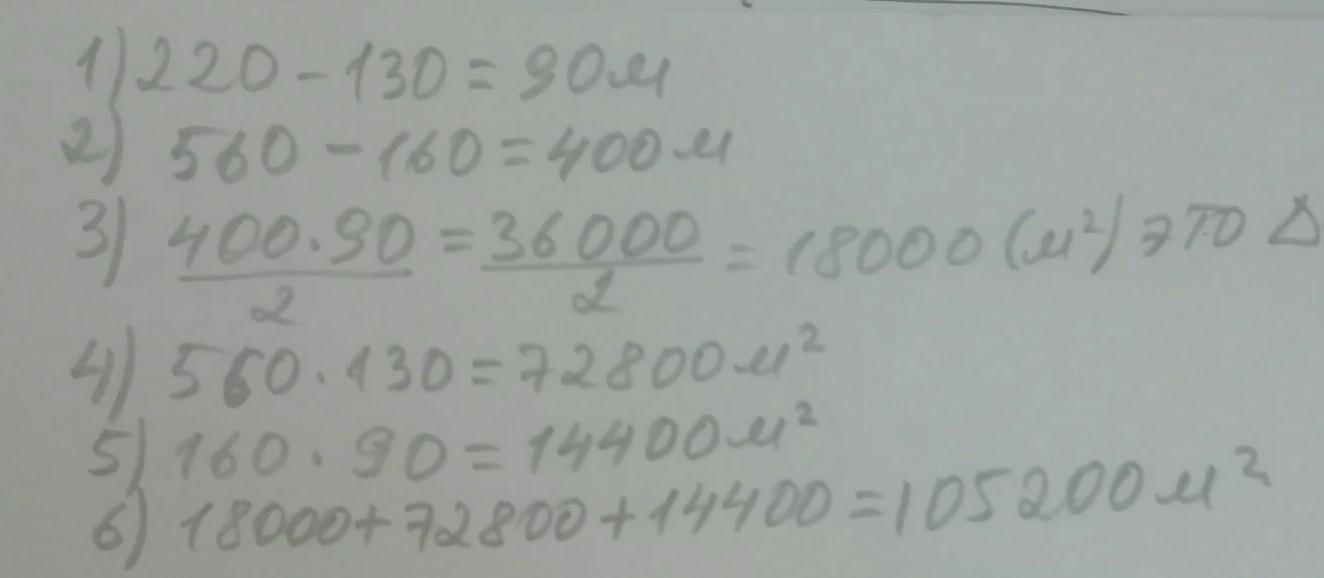 1) 220 - 130 = 90м
2) 560 - 160 = 400м
3) 400·90/2 = 36000/2 = 18000 (м²) это Δ
4) 560·130 = 72800м²
5) 160·90 = 14400м²
6) 18000 + 72800 + 14400 = 105200м²